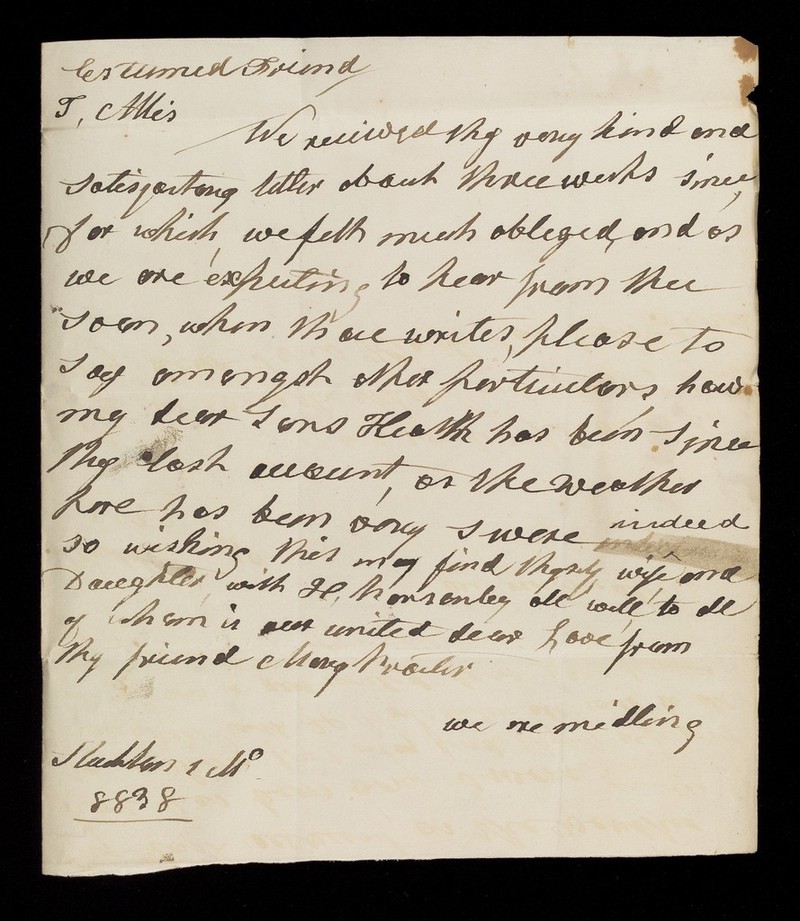 Estumed Friend
T, Allis
We reciived thy very kind and
satisfactory letter about three weeks since,
for which, we felt much obleged, and as
we are expecting to hear from thee
soon, when thou writes, please to
say amongst other particulars, how
my dear Sons Health has been since
thy last account, as the weather
here has been very severe indeed
so wishing this may find thyself wife and
Daughter, with H, all well, to all
of whom is our united dear love, from
thy friend Mary
we are midling
1 Mo
8838